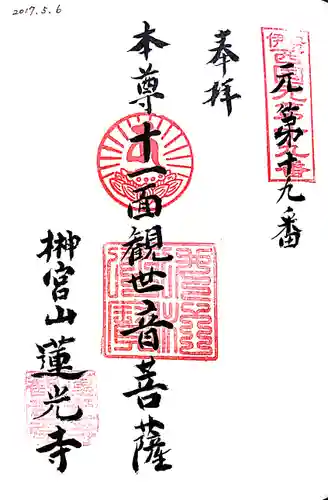 2017.5.6
元第十九番
奉拝
本尊十一面観世音菩薩
榊宮山蓮光寺